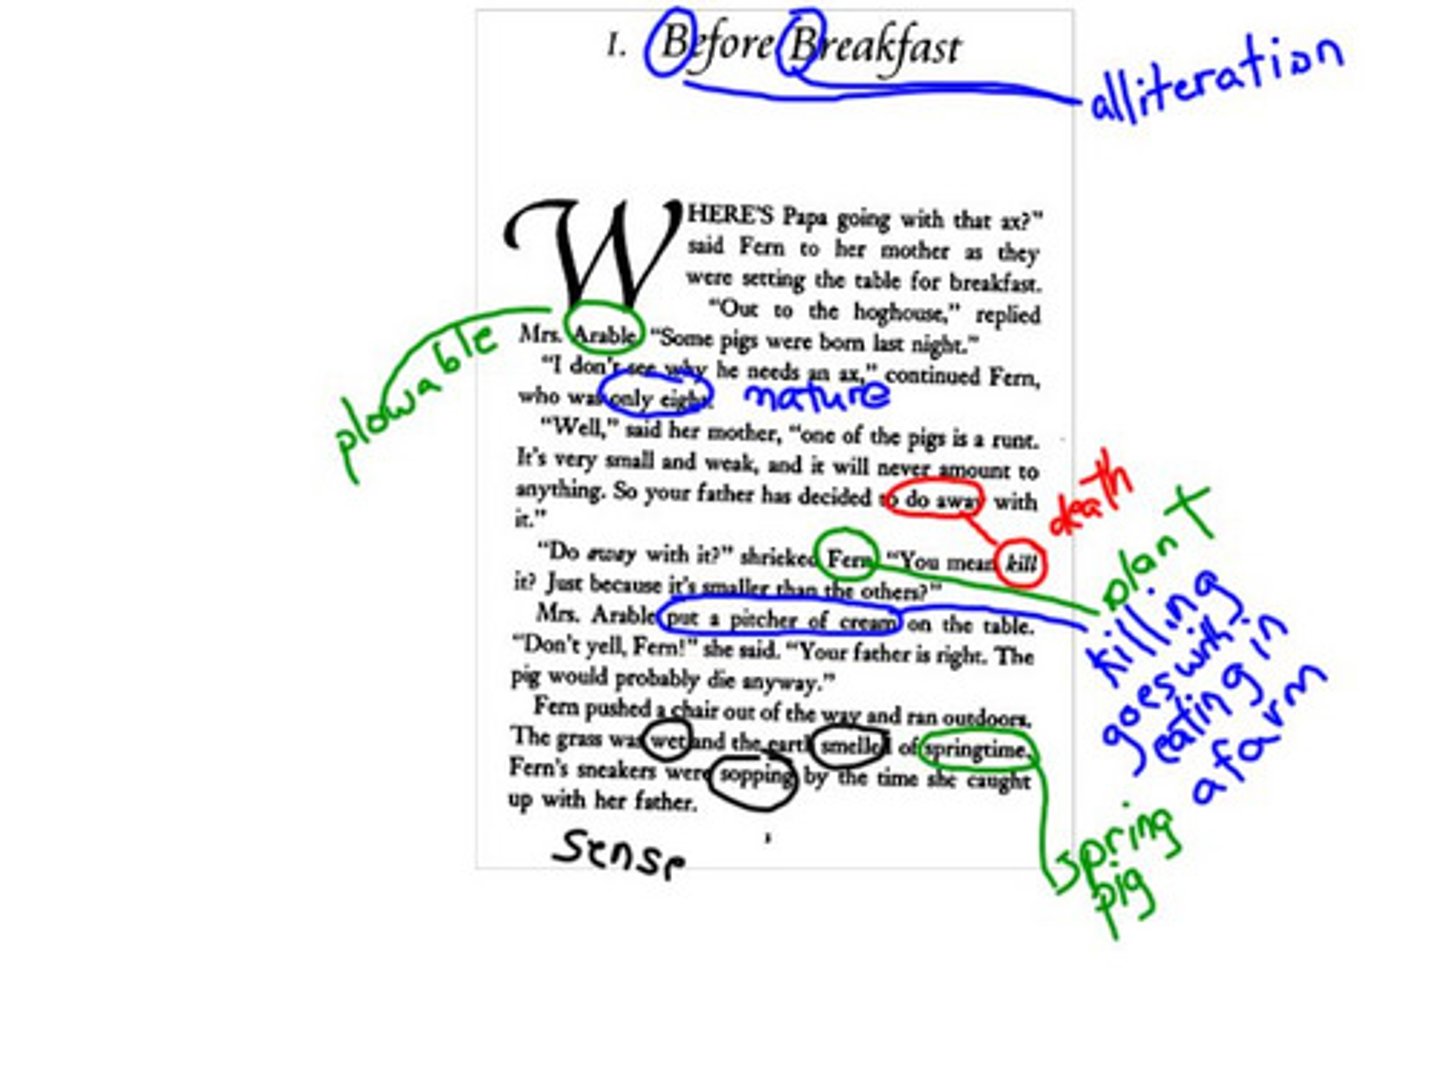 I. Before Breakfast
alliteration
WHERE'S Papa going with that ax?"
said Fern to her mother as they
were setting the table for breakfast.
"Out to the hoghouse," replied
Mrs. Arable. "Some pigs were born last night."
plowable
"I don't see why he needs an ax," continued Fern,
who was only eight.
nature
"Well," said her mother, "one of the pigs is a runt.
It's very small and weak, and it will never amount to
anything. So your father has decided to do away with
it."
death
"Do away with it?" shrieked Fern. "You mean kill
it? Just because it's smaller than the others?"
plant
Mrs. Arable put a pitcher of cream on the table.
"Don't yell, Fern!" she said. "Your father is right. The
pig would probably die anyway."
killing
goes with
eating in
a farm
Fern pushed a chair out of the way and ran outdoors.
The grass was wet and the earth smelled of springtime.
Fern's sneakers were sopping by the time she caught
up with her father.
spring
pig
sense